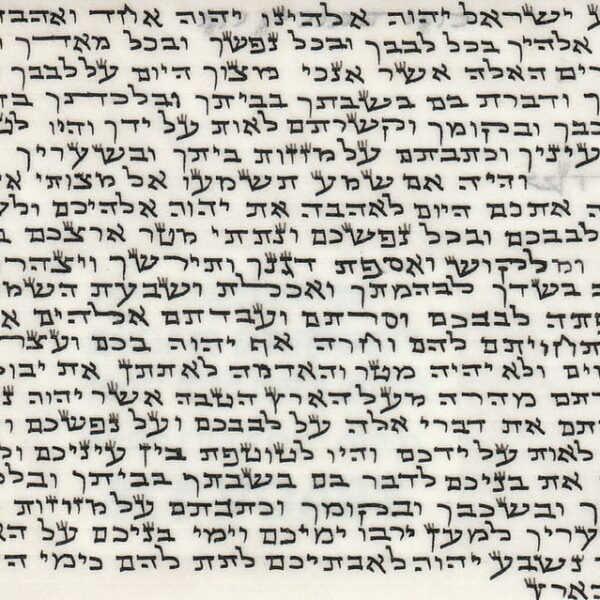 ע ישראל יהוה אלהינו יהוה אחד ואהב
אלהיך בכל לבבך ובכל נפשך ובכל מאדך ו
רים האלה אשר אנכי מצוך היום על לבבך
ך ודברת בם בשבתך בביתך ובלכתך בד
כבך ובקומך וקשרתם לאות על ידך והיו לט
עיניך וכתבתם על מזזות ביתך ובשעריך
והיה אם שמע תשמעו אל מצותי א
ה אתכם היום לאהבה את יהוה אלהיכם ולע
לבבכם ובכל נפשכם ונתתי מטר ארצכם ב
ומלקוש ואספת דגנך ותירשך ויצהר
ב בשדך לבהמתך ואכלת ושבעת השמ
פתה לבבכם וסרתם ועבדתם אלהים א
תחויתם להם וחרה אף יהוה בכם ועצר
ים ולא יהיה מטר והאדמה לא תתן את יבול
דתם מהרה מעל הארץ הטבה אשר יהוה נ
תם את דברי אלה על לבבכם ועל נפשכם ו
לאות על ידכם והיו לטוטפת בין עיניכם ול
את בניכם לדבר בם בשבתך בביתך ובל
ך ובשכבך ובקומך וכתבתם על מזוזות
עריך למען ירבו ימיכם וימי בניכם על הא
נשבע יהוה לאבתיכם לתת להם כימי ה
הארץ